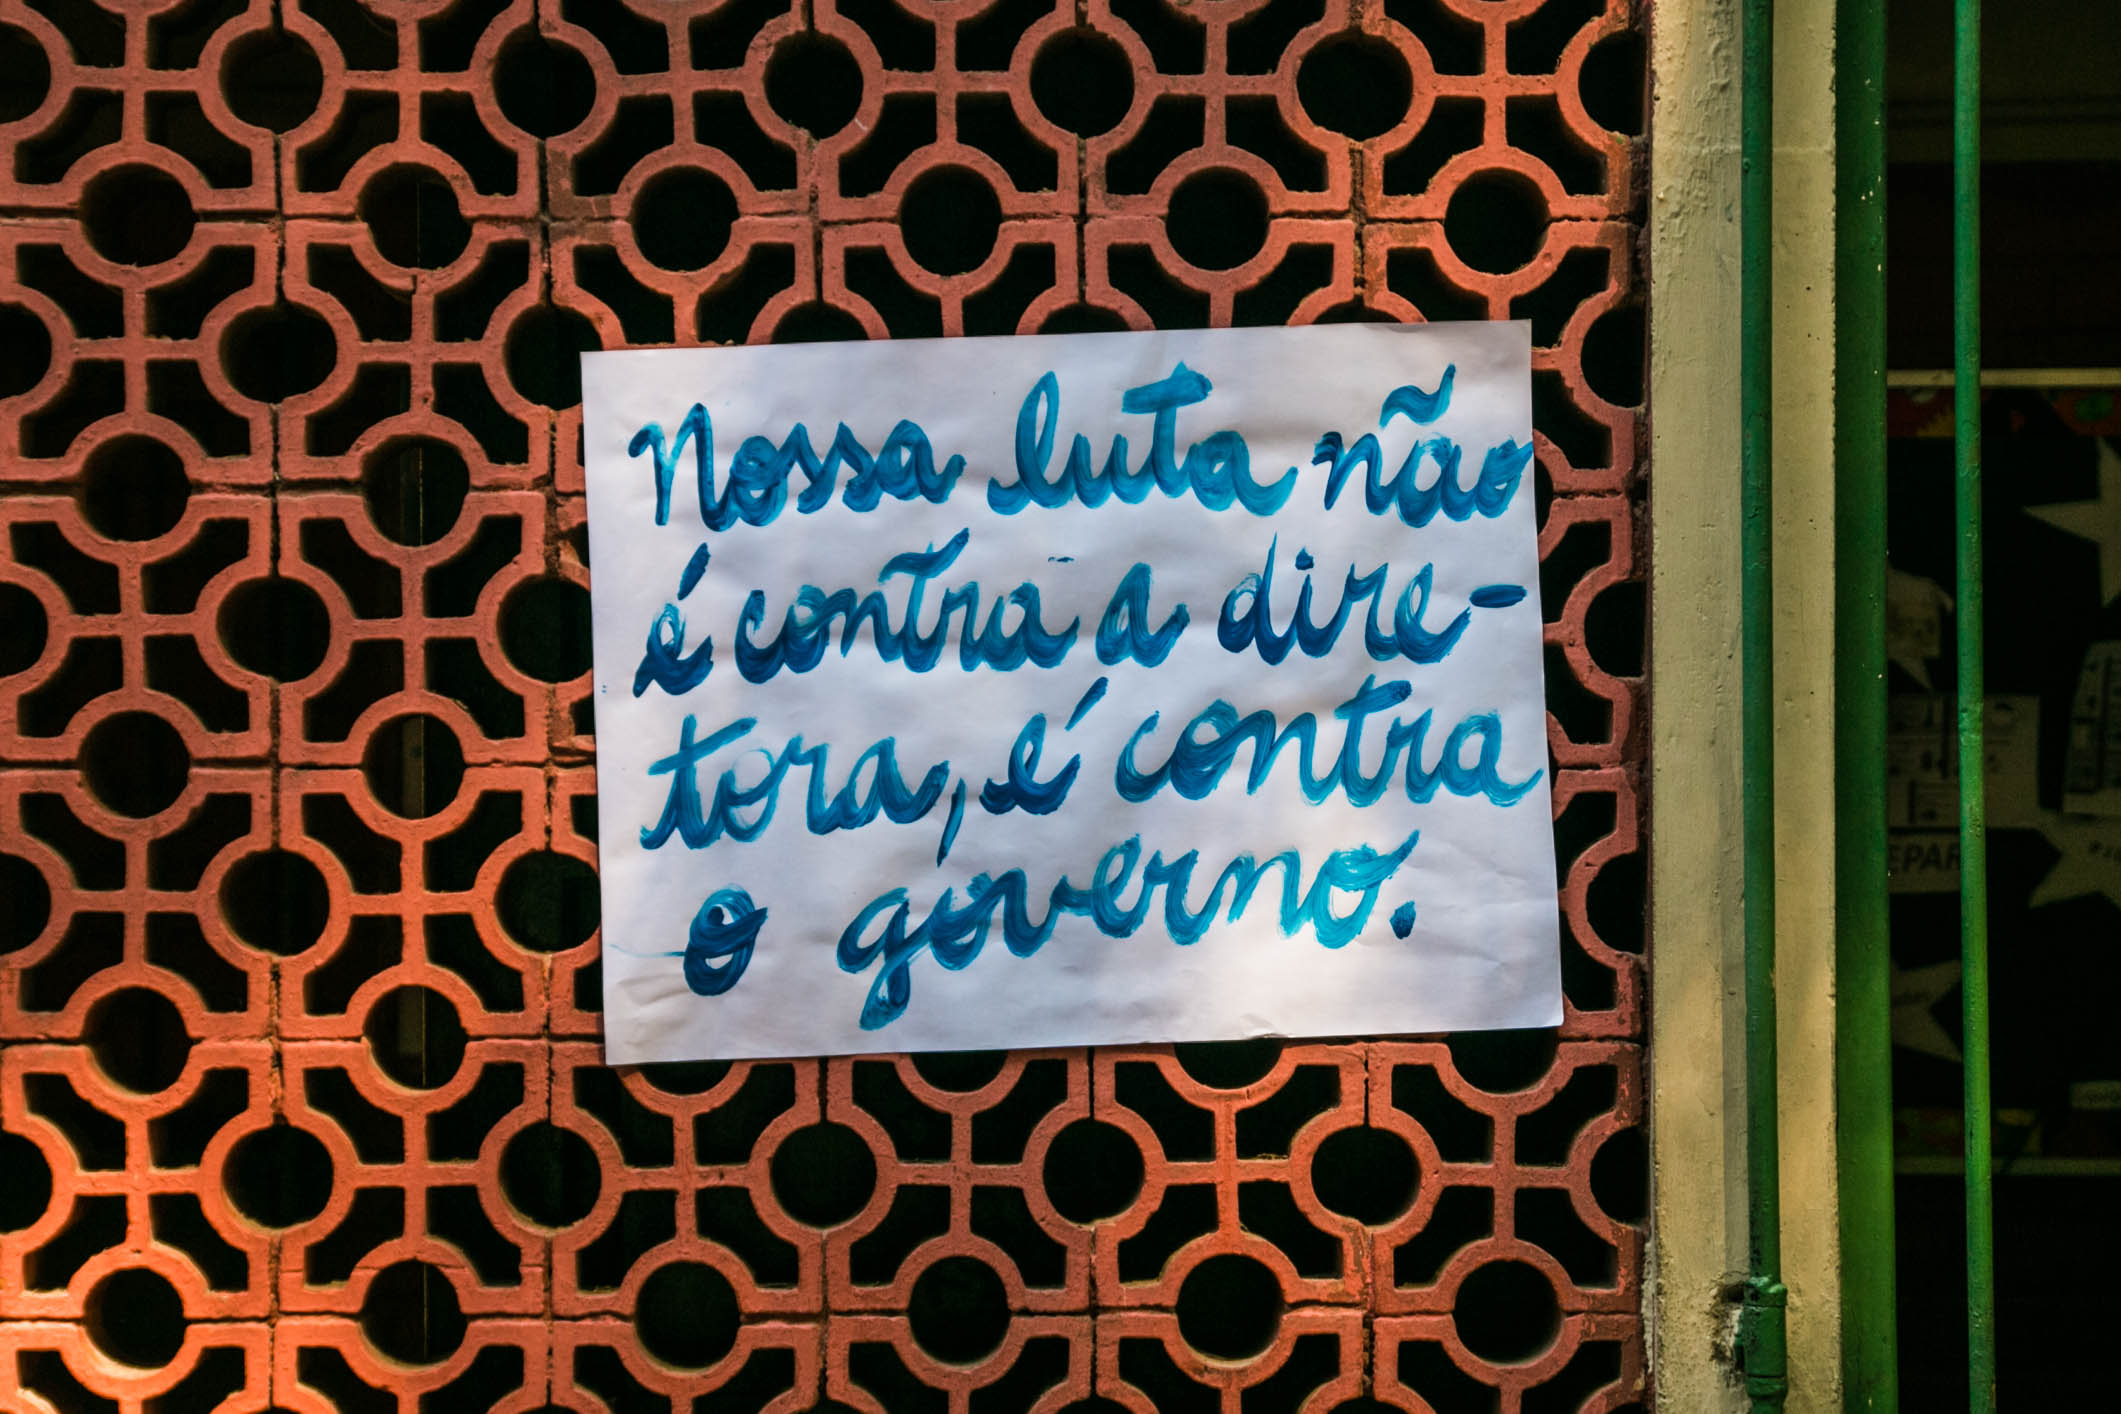 Nossa luta não
é contra a dire-
tora, é contra
o governo.
EPAR